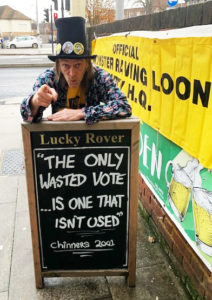 OFFICIAL
STER RAVING LOON
H.Q.
Lucky Rover
"THE ONLY
WASTED VOTE
...IS ONE THAT
ISN'T USED"
Chinners 2001